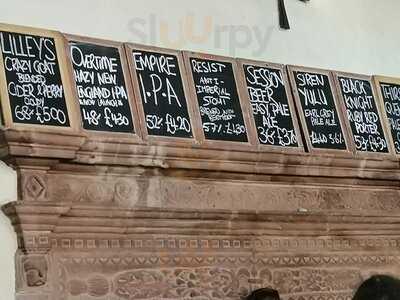 LILLEYS
CRAZY GOAT
BLENDED
CIDER & PERRY
CLOUDY
6.8% £5.00
OVERTIME
HAZY NEW
ENGLAND I.P.A
4.8% £4.30
EMPIRE
I.P.A
5.2% £4.20
RESIST
ANTI-
IMPERIAL
STOUT
5.7% £4.30
SESSION
BEER
EASY PALE
ALE
SIREN
YULU
EARL GREY
PALE ALE
£4.40 3.6%
BLACK
KNIGHT
RUBY RED
PORTER
QUEEN
Sluurpy